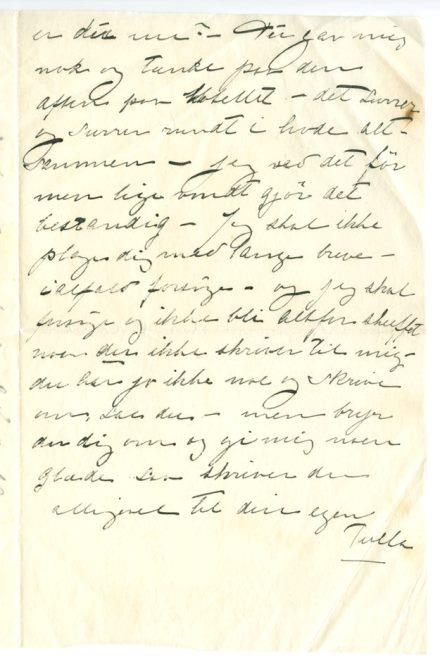 er det nu? – Det gav mig
nok og tænke paa den
aften paa Hotellet – det surrer
og surrer rundt i hode alt-
sammen – jeg ved det før
men lige ondt gjør det
bestandig – Jeg skal ikke
plage dig med lange breve –
ialfald forsøge – og jeg skal
forsøge og ikke bli altfor skuffet
naar du ikke skriver til mig –
du har jo ikke noe og skrive
om, sae du – men bryr
du dig om og gi mig noen
Glæde saa skriver du
alligevel til din egen
Tulla